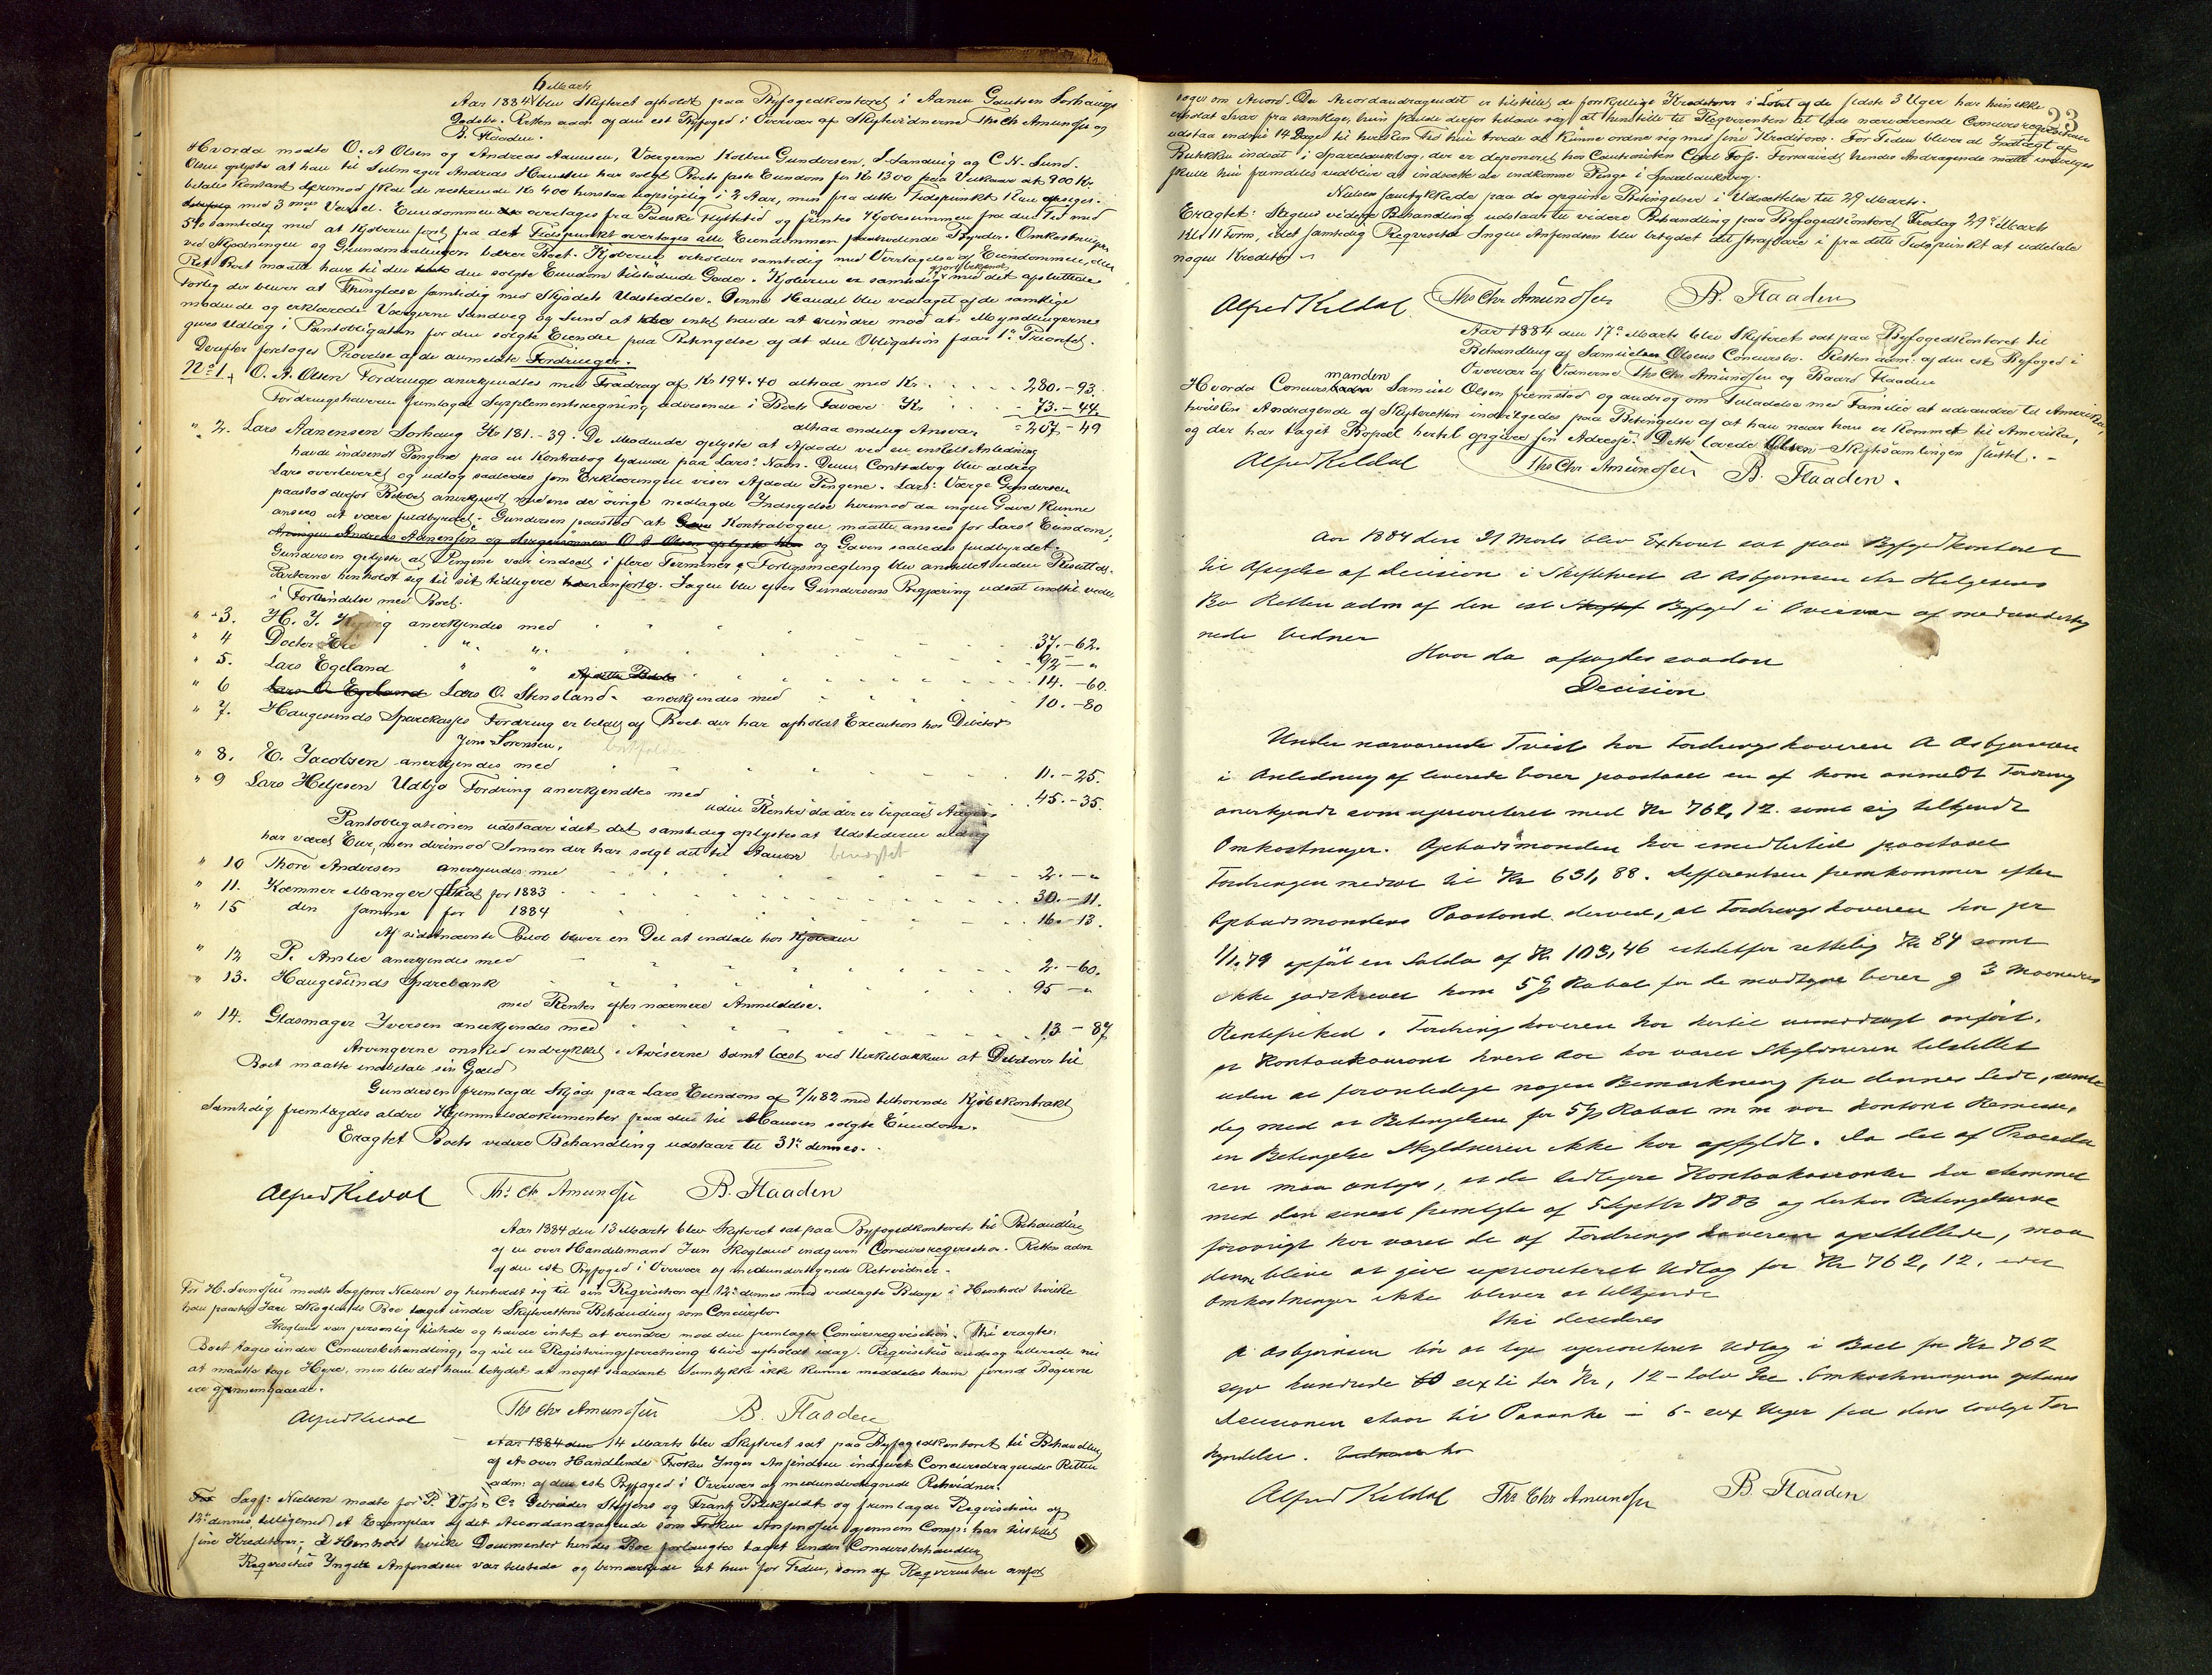 6 Marts
Aar 1884 blev Skifteret afholdt paa Byfogedkontoret i Aanen Gautsen Sørhaugs
Dødsbo. Retten adm af den cst Byfoged i Overvær af Skiftevidnerne Ths Ch Amundsen og
B. Flaaden.
Hvorda mødte O. A Olsen og Andreas Aanensen, Værgerne Kolben Gundersen, S. Sandvig og C. N. Sund.
Olsen oplyste at han til Seilmager Andreas Hansen har solgt Boets faste Eiendom for Kr 1300 paa Vilkaar at 900 Kr.
betales kontant hvorimod skal de resterende Kr 400 henstaa uopsigelig i 2 Aar, men fra dette Tidspunkt kan opsiges
med 3 mdrs Varsel. Eiendommen overtages fra Paaske Flyttetid og forrentes Kjøbesummen fra den Tid med
5% samtidig med at Kjøberen fra det Tidspunkt overtages alle Eiendommen paahvilende Byrder. Omkostninger
ved Skjødningen og Grundmaalingen bærer Boet. Kjøberen erholder samtidig med Overtagelse af Eiendommen, den
Ret Boet maatte have til den den solgte Eiendom tilstødende Gade. Kjøberen er samtidig gjort bekjendt med det afsluttede
Forlig der bliver at Thinglæse samtidig med Skjødets Udstedelse. Denne Handel blev vedtaget af de samtlige
mødende og erklærede Værgerne Sandvig og Sund at de intet havde at erindre mod at Myndlingerne
gives Udlæg i Pantobligation for den solgte Eiendom paa Betingelse af at den Obligation faar 1ste Prioritet.
Derefter foretoges Prøvelse af de anmeldte Fordringer.
No 1. O. A. Olsen Fordringer anerkjendtes med Fradrag af Kr 194.40 altsaa med Kr. 280.-93.
Fordringshaveren fremlagde Supplementsregning udvisende i Boets Favør Kr 73.-44
altsaa endelig Ansvar = 207-49
" 2. Lars Aanensen Sørhaug Kr 181.-39. De Mødende oplyste at Afdøde ved en enkelt Anledning
havde indsendt Pengene paa en Kontrabog lydende paa Lars' Navn. Denne Contrabog blev aldrig
Lars overleveret og udtog saaledes som Erklæringen viser Afdøde Pengene. Lars: Værge Gundersen
paastod derfor Beløbet anerkjendt medens de øvrige nedlagde Indsigelse herimod da ingen Gave kunne
ansees at være fuldbyrdet. Gundersen paastod at Kontrabogen maatte ansees for Lars' Eiendom,
Arvingen Andreas Aanensen og Svigersønnen O A Olsen oplyste og Gaven saaledes fuldbyrdet.
Gundersen oplyste at Pengene var indsat i flere Terminer. Forligsmægling blev anstillet uden Resultat.
Parterne henholdt sig til sit tidligere anførte. Sagen blev efter Gundersens Begjæring udsat indtil videre
i Forbindelse med Boet.
" 3. H. J. anerkjendes med 37.-62.
" 4 Doctor " " 92 - "
" 5. Lars Egeland " " 14.-60.
" 6 Lars O. Egeland Lars O. Stensland. anerkjendes med 10.-80
" 7. Haugesunds Sparekasses Fordring er betalt af Boet der har afholdt Execution hos Debitor
Jens Sørensen. bortfalder
" 8. E. Jacobsen anerkjendes med 11.-25.
" 9 Lars Heljesen Udbjo Fordring anerkjendtes med 45.-35.
uden Renter da der er ligeaars
Pantobligationen udstaar idet det samtidig oplystes at Udstederen aldrig
har været Eier, men derimod Sønnen der har solgt det til Aanen benegtet
" 10 Thore Andersen anerkjendes med 2.-"
" 11. Kæmner Manger Skat for 1883 30.-11.
" 15 den samme for 1884 16.-13.
Af sidstnævnte Beløb bliver en Del at indtale hos Kjøberen
" 12 P. Amlie anerkjendes med 2.-60.
" 13. Haugesunds Sparebank 95 - "
med Renter efter nærmere Anmeldelse.
" 14. Glasmager Iversen anerkjendes med 13-87
Arvingerne ønsked indrykket i Aviserne samt læst ved Kirkebakken at Debitorer til
Boet maatte indbetale sin Gjæld
Gundersen fremlagde Skjøde paa Lars Eiendom af 7/11 82 med tilhørende Kjøbekontrakt
Samtidig fremlagdes ældre Hjemmelsdokumenter paa den til Hansen solgte Eiendom.
Eragtet Boets videre Behandling udstaar til 31te dennes.
Alfred Kildal Ths Ch Amundsen B. Flaaden
Aar 1884 den 13 Marts blev Skifteret sat paa Byfogedkontoret til Behandling
af en over Handelsmand Jens Skogland indgiven Concursrequisition. Retten adm
af den cst Byfoged i Overvær af medundertegnede Retsvidner.
For H. Svendsen mødte Sagfører Nielsen og henholdt sig til sin Requisition af 12te dennes med vedlagte Bilage i Henhold hvilke
han paastod Jens Skoglands Bo taget under Skifterettens Behandling som Concursbo
Skogland var personlig tilstede og havde intet at erindre mod den fremlagte Concursrequisition. Thi eragtes:
Boet tages under Concursbehandling, og vil en Registreringsforretning blive afholdt idag. Requisitus androg allerede nu
at maatte tage Hyre, men blev det ham betydet at noget saadant Samtykke ikke kunne meddeles ham førend Bøgerne
ere gjennemgaaede.
Alfred Kildal Ths Chr Amundsen B. Flaaden
Aar 1884 den 14 Marts blev Skifteret sat paa Byfogedkontoret til Behandling
af en over Handlende Frøken Inger Anfindsen indgivet Concursdragende Retten
adm: af den cst Byfoged i Overvær af medundertegnede Retsvidner.
Sagf: Nielsen mødte for P. Voss & Co Gebrüder Steffens og Frantz Birkfeldt og fremlagde Requisition af
12te dennes tilligemed et Exemplar af det Accordandragende som Frøken Anfindsen gjennem Comp: har tilstillet
sine Kreditorer; i Henhold hvilke Documenter hendes Bo forlangtes taget under Concursbehandling
Requisitus Inger Anfindsen var tilstede og bemærkede at hun for Tiden, som af Requirenten anført
23
søger om Accord. Da Accordandragendet er tilstillet de forskjellige Kreditorer i Løbet af de sidste 3 Uger har hun ikke
erholdt Svar fra samtlige, hun skulde derfor tillade sig at henstille til Requirenten at lade nærværende Concursrequisition
udstaa endnu 14 Dage til hvilken Tid hun troede at kunne ordne sig med sine Kreditorer. For Tiden bliver al Indtægt af
Butikken indsat i Sparebankbog, der er deponeret hos Cautionisten Carl Foss. Forsaavidt hendes Andragende maatte imødekommes
skulle hun fremdeles vedblive at indsætte de indkomne Penge i Sparebankbog.
Nielsen samtykkede paa de opgivne Betingelser i Udsættelse til 29 Marts.
Eragtet: Sagens videre Behandling udstaar til videre Behandling paa Byfogedkontoret Fredag 29de Marts
Kl 11 Form, idet samtidig Requisita Inger Anfindsen blev betydet det strafbare i fra dette Tidspunkt at udbetale
nogen Kreditor
Alfred Kildal. Ths Chr Amundsen B. Flaaden
Aar 1884 den 17de Marts blev Skifteret sat paa Byfogedkontoret til
Behandling af Samuel Olsens Concursbo. Retten adm: af den cst Byfoged i
Overvær af Vidnerne Ths Chr Amundsen og Baard Flaaden
manden
Hvorda Concurs Samuel Olsen fremstod og androg om Tilladelse med Familie at udvandre til Amerika,
hvilken Andragende af Skifteretten indvilgedes paa Betingelse af at han naar han er kommet til Amerika,
og der har taget Bopæl hertil opgiver sin Adresse. Dette lovede Olsen - Skiftesamlingen sluttet. -
Alfred Kildal Ths Chr Amundsen B. Flaaden.
Aar 1884 den 21 Marts blev Extraret sat paa Byfogedkontoret
til Afsigelse af Decision i Skiftetvist A Asbjørnsen ctr Helgesens
Bo Retten adm af den cst Byfoged i Overvær af medunderteg
nede Vidner
Hvor da afsagdes saadan
Decision
Under nærværende Tvist har Fordringshaveren A Asbjørnsen
i Anledning af leverede Varer paastaaet en af ham anmeldt Fordring
anerkjendt som uprioriteret med Kr 762,12. samt sig tilkjendt
Omkostninger. Opbudsmanden har imidlertid paastaaet
Fordringen nedsat til Kr 631,88. Differentsen fremkommer efter
Opbudsmandens Paastand derved, at Fordringshaveren har pr
1/1.79 opført en Saldo af Kr 103,46 istedetfor rettelig Kr 84 samt
ikke godskrevet ham 5% Rabat for de modtagne Varer og 3 Maaneders
Rentefrihed. Fordringshaveren har hertil anført,
at Kontokourant hvert Aar har været Skyldneren tilstillet
uden at foranledige nogen Bemærkning fra dennes Side, samt
dog med at Betingelsen for 5% Rabat m m var kontant Remisse,
en Betingelse Skyldneren ikke har opfyldt. Da det af Procedu
ren maa antages, at de tidligere Kontokouranter har stemmet
med den senest fremlagte af 5 Septbr 1883 og derhos Betingelserne
forøvrigt har været de af Fordringshaveren opstillede, maa
denne blive at give uprioriteret Udlæg for Kr 762,12. idet
Omkostninger ikke bliver at tilkjende
Thi decideres
A Asbjørnsen bør at tage uprioriteret Udlæg i Boet for Kr 762
syv hundrede sexti to Kr, 12 - tolv Øre. Omkostningerne ophæves
Decisionen staar til Paaanke i 6 - sex Uger fra dens lovlige For
kyndelse.
Alfred Kildal Ths Chr Amundsen B. Flaaden